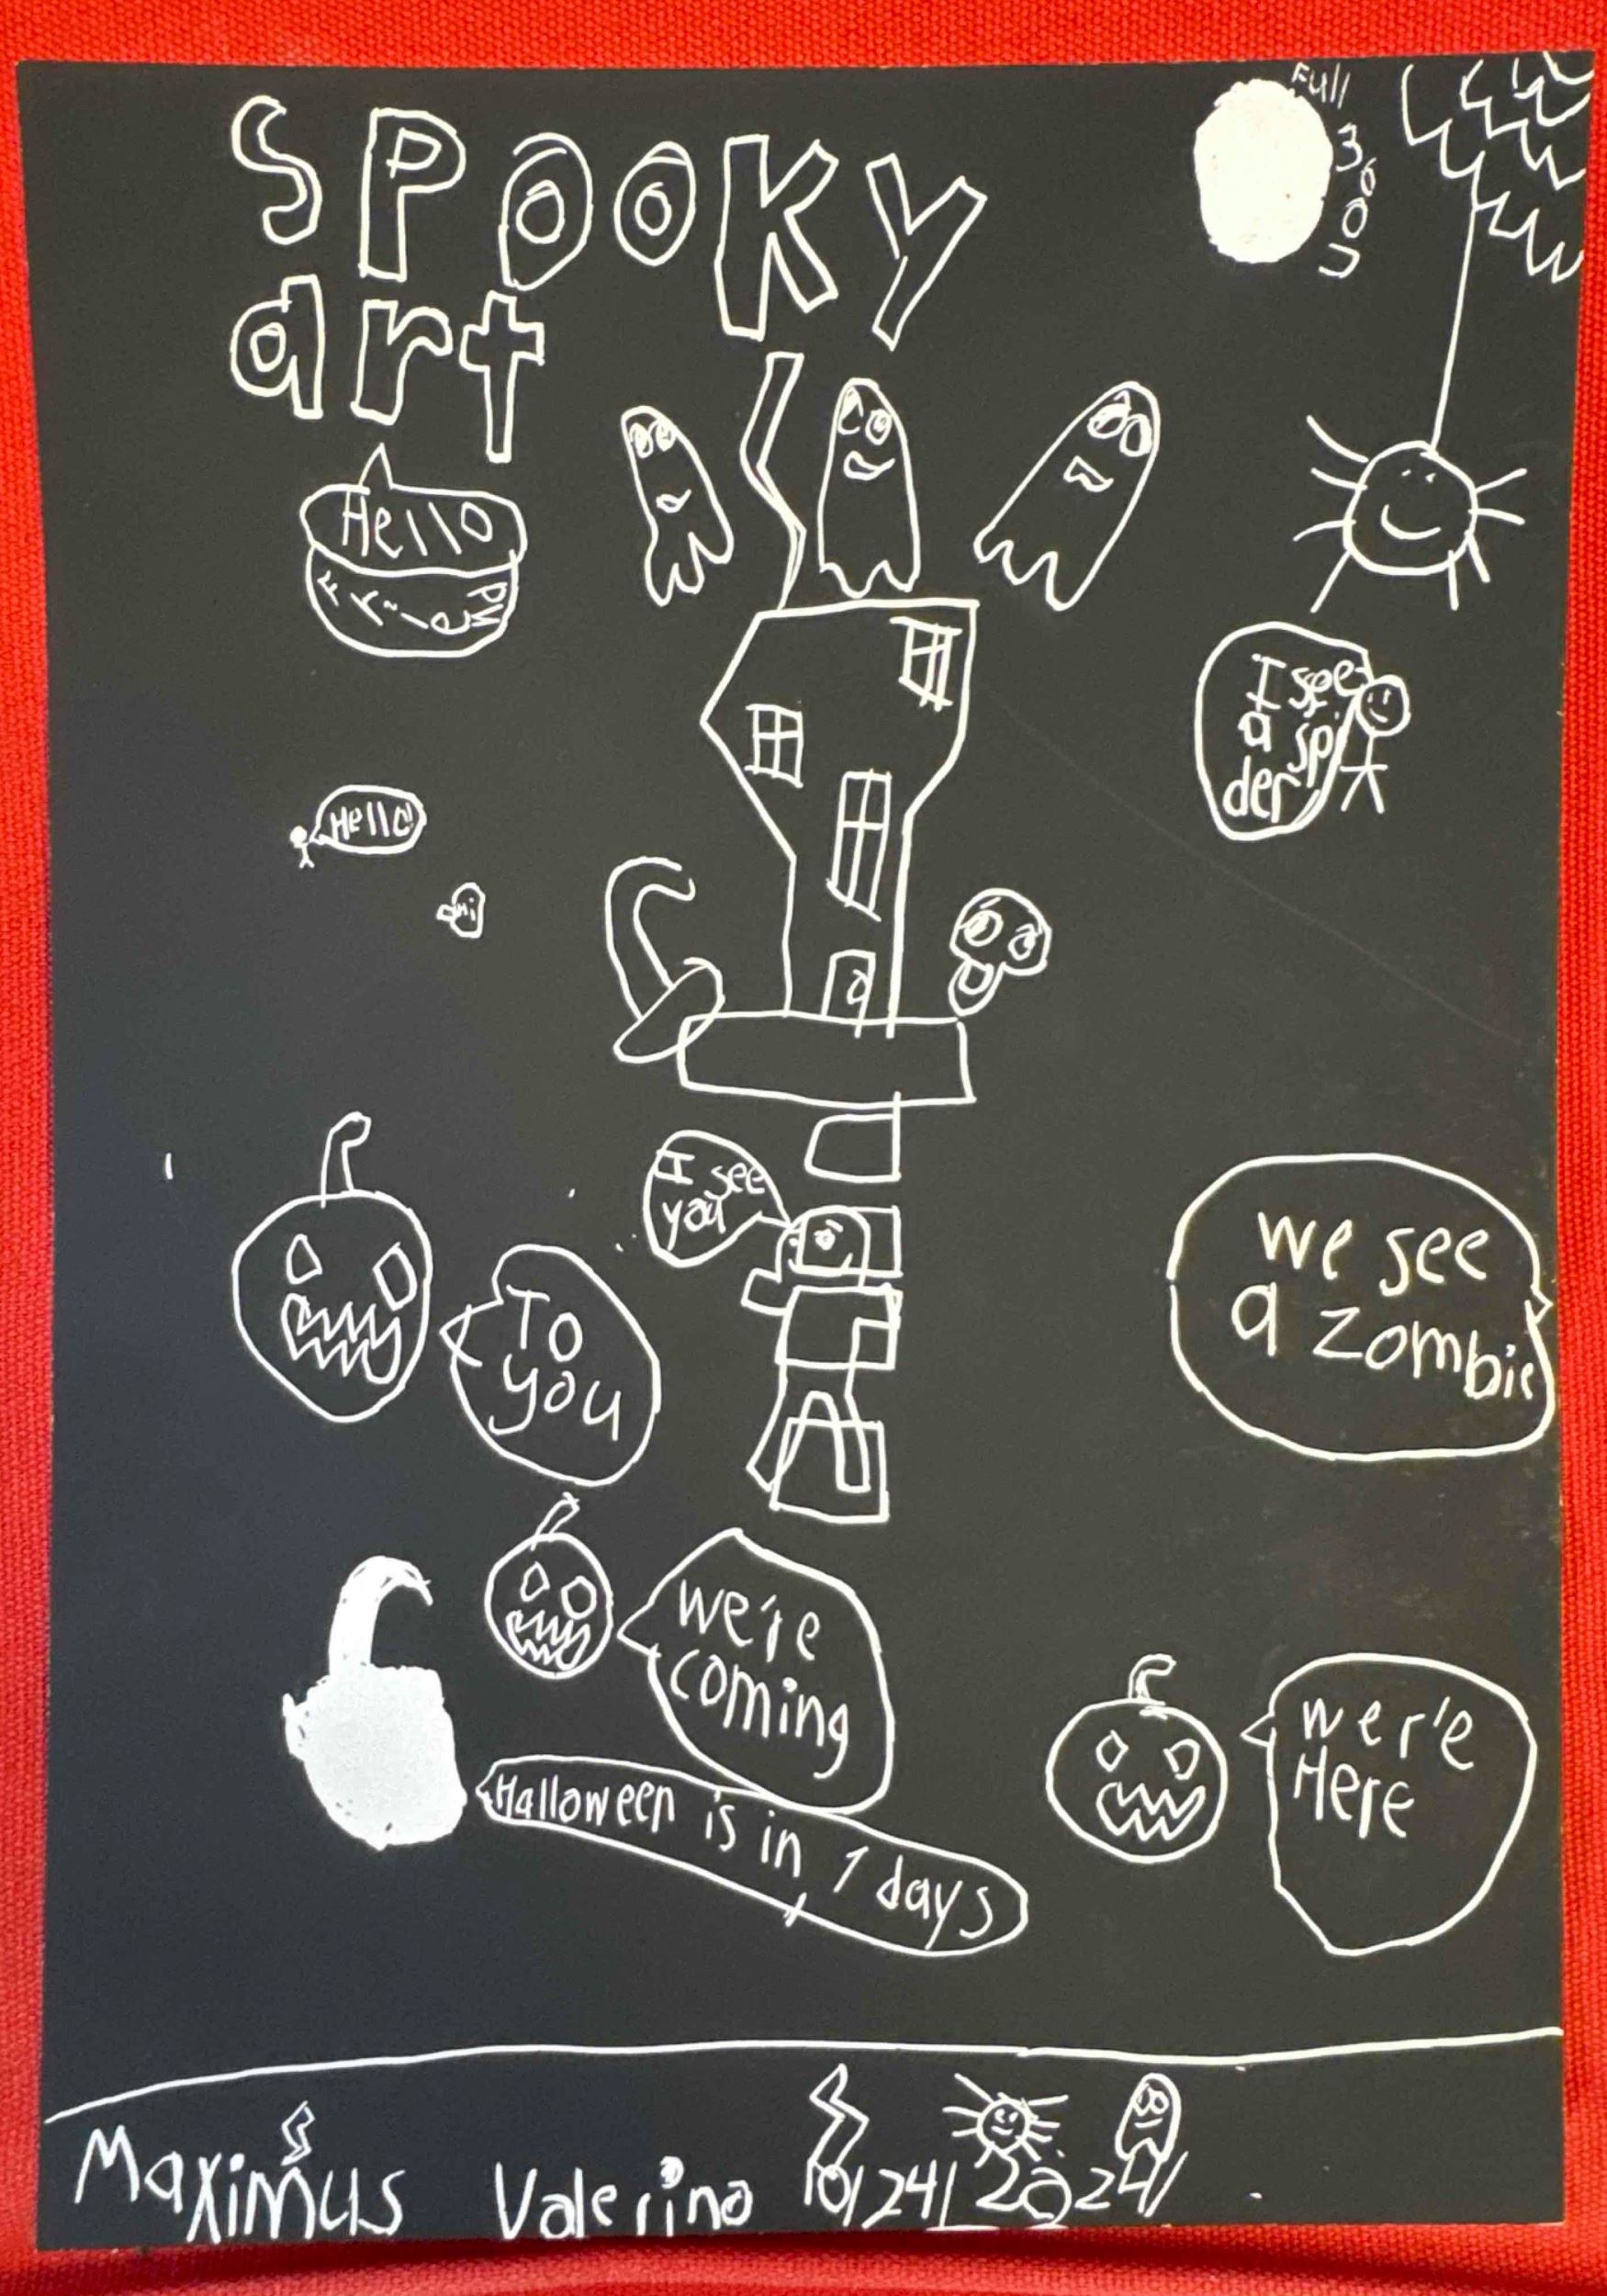 SPOOKY
art
Full
Moon
Hello
Friend
I see
a spi
der
Hello!
Hi
I see
you
To
you
we see
a zombie
we're
coming
wer'e
Here
Halloween is in 7 days
Maximus Valerino 10/24/2024